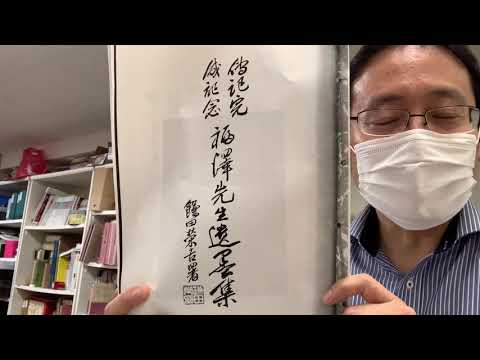 傳記完
成記念
福澤先生遺墨集
鎌田榮吉署